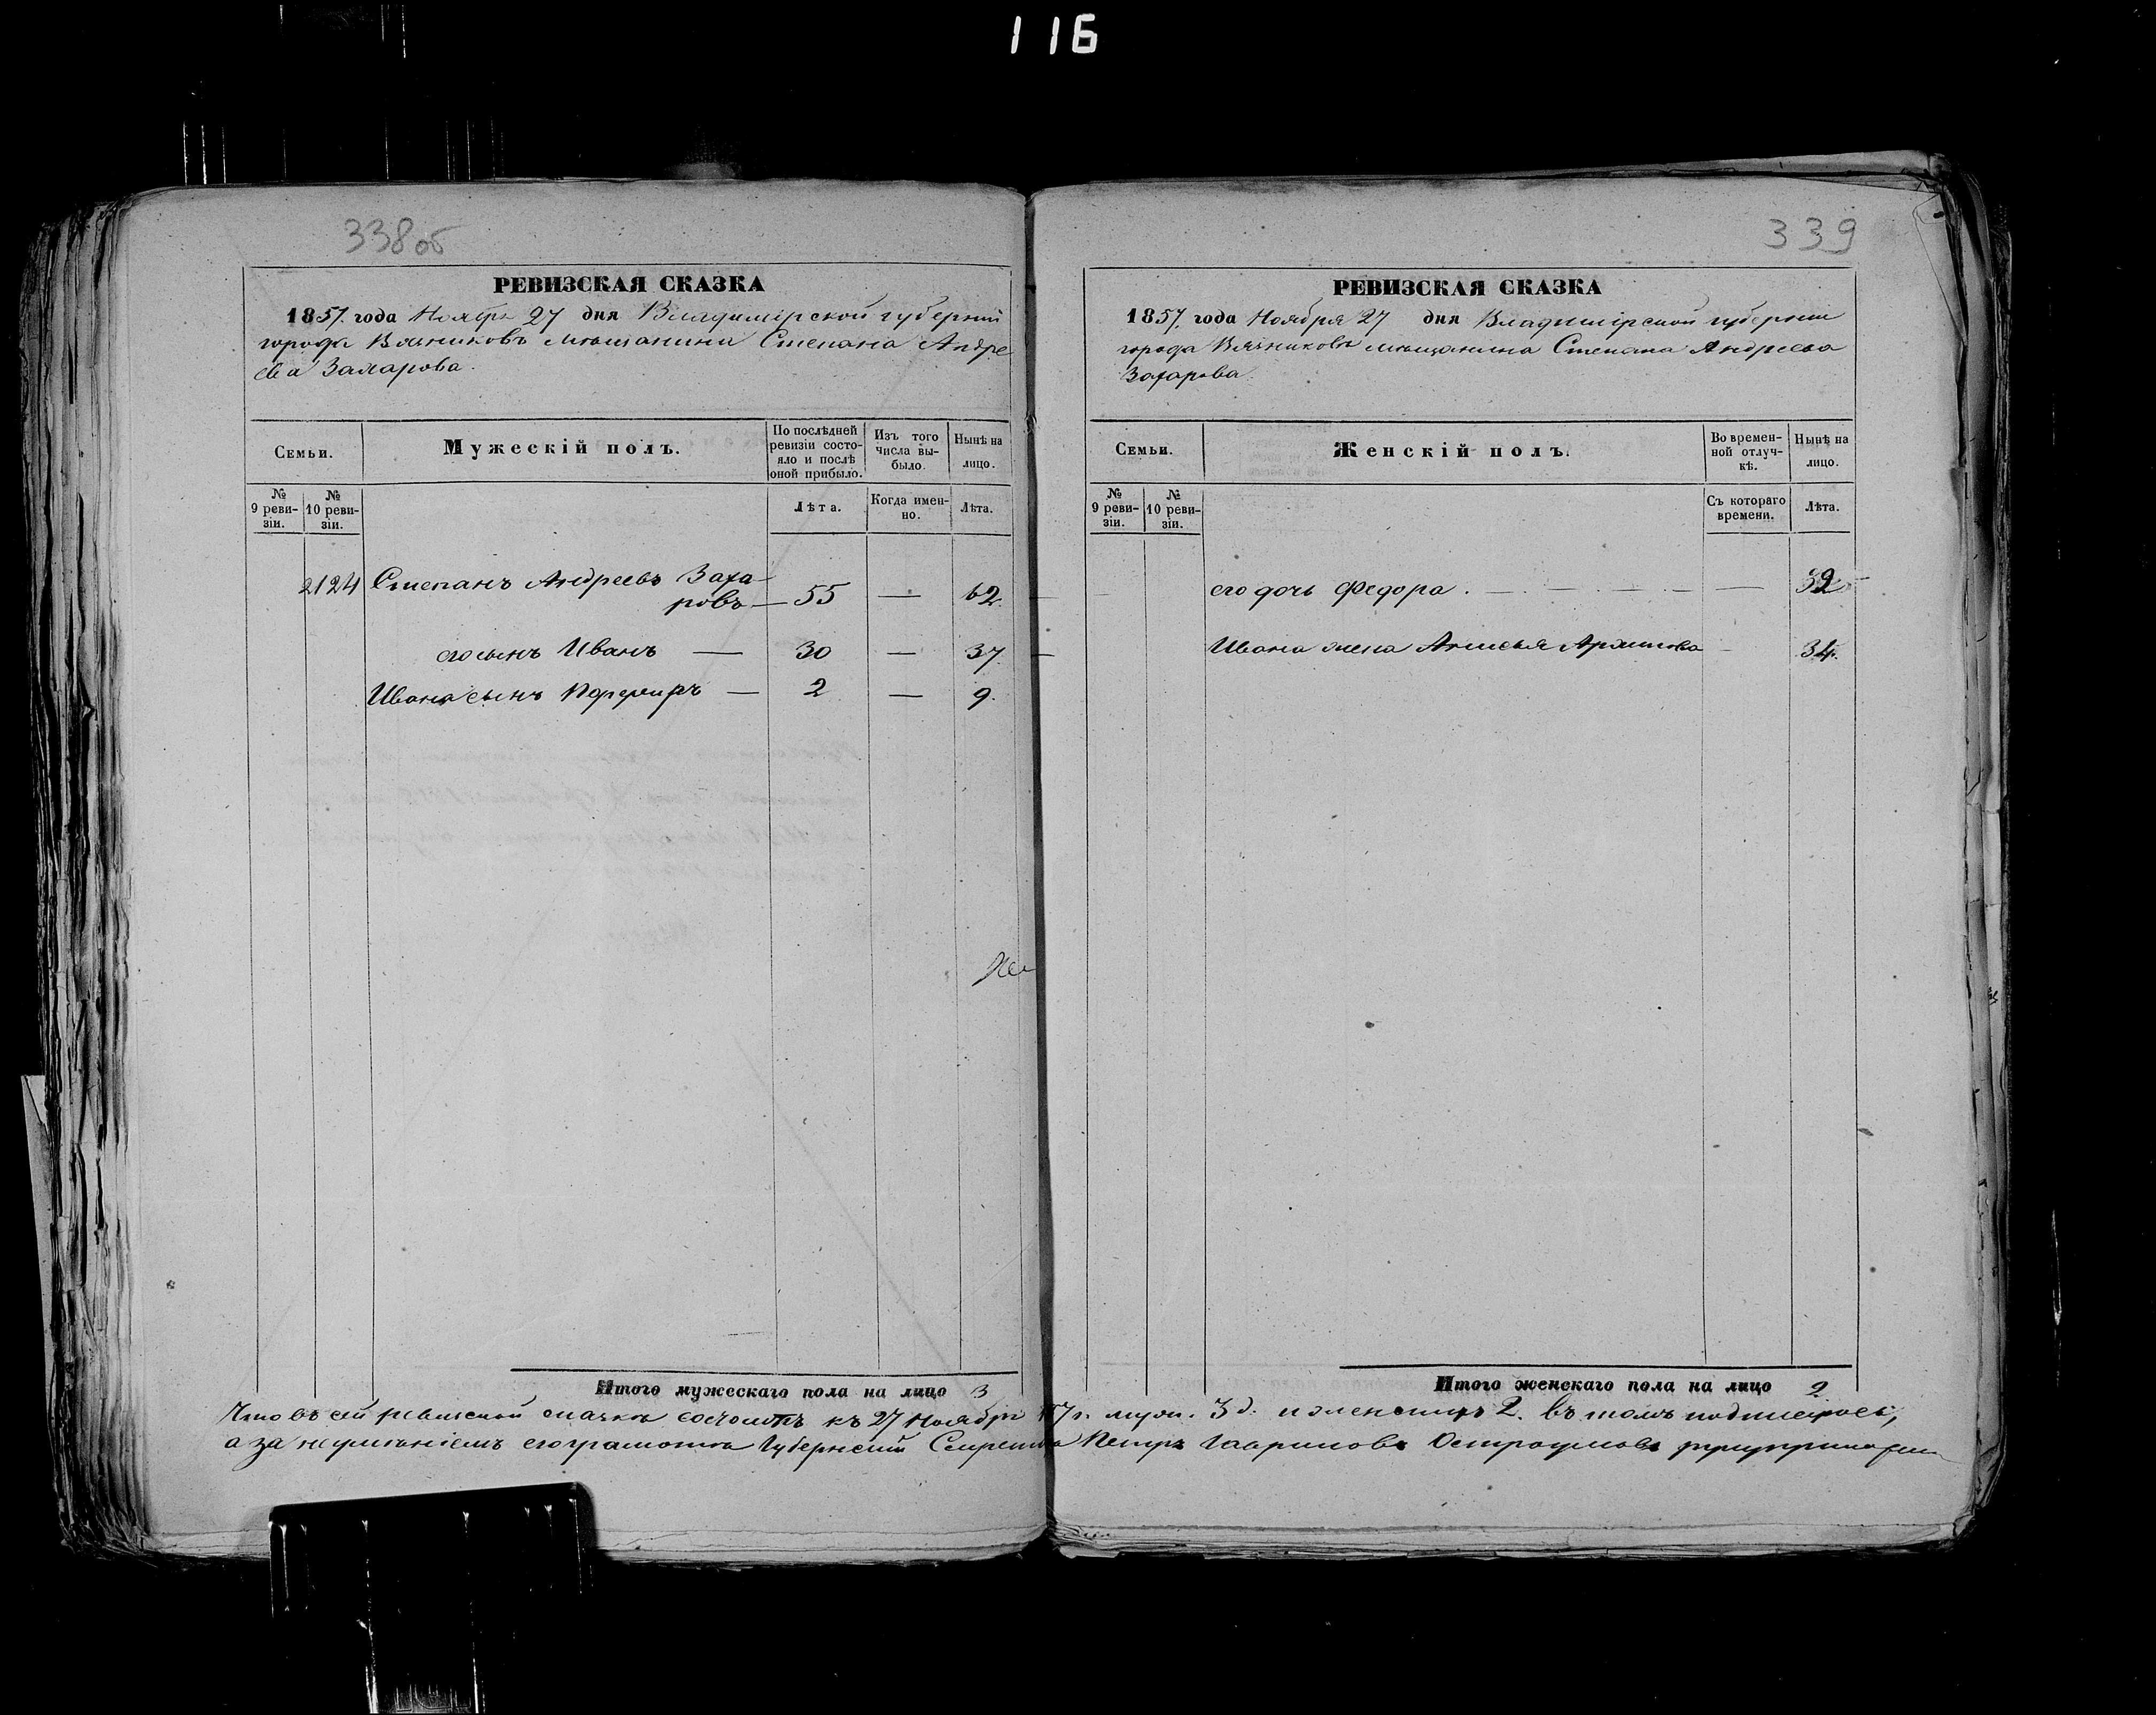 116
338об
РЕВИЗСКАЯ СКАЗКА
1857. года Ноября 27 дня Владимірской губерніи
города Вязниковъ мѣщанина Степана Андре
ева Захарова.
Семьи.
Мужескій полъ.
По послѣдней ревизіи состояло и послѣ оной прибыло.
Изъ того числа выбыло.
Нынѣ на лицо.
№ 9 ревизіи.
№ 10 ревизіи.
Лѣта.
Когда именно.
Лѣта.
2124 Степанъ Андреевъ Заха-
ровъ — 55 — 62.
его сынъ Иванъ — 30 — 37.
Ивана сынъ Порфиръ — 2 — 9.
Итого мужескаго пола на лицо 3
339
РЕВИЗСКАЯ СКАЗКА
1857. года Ноября 27 дня Владимірской губерніи
города Вязниковъ мѣщанина Степана Андреева
Захарова.
Семьи.
Женскій полъ.
Во временной отлучкѣ.
Нынѣ на лицо.
№ 9 ревизіи.
№ 10 ревизіи.
Съ котораго времени.
Лѣта.
его дочь Федора. — 32
Ивана жена Анисья 34.
Итого женскаго пола на лицо 2
Что въ сей ревизской сказкѣ состоитъ къ 27 Ноября 57 г. муж. 3 д. и женскихъ 2. въ томъ подписуюсь,
а за неумѣніемъ его грамотѣ Губернскій Секретарь Петръ Гавриловъ Остроумовъ руку приложилъ